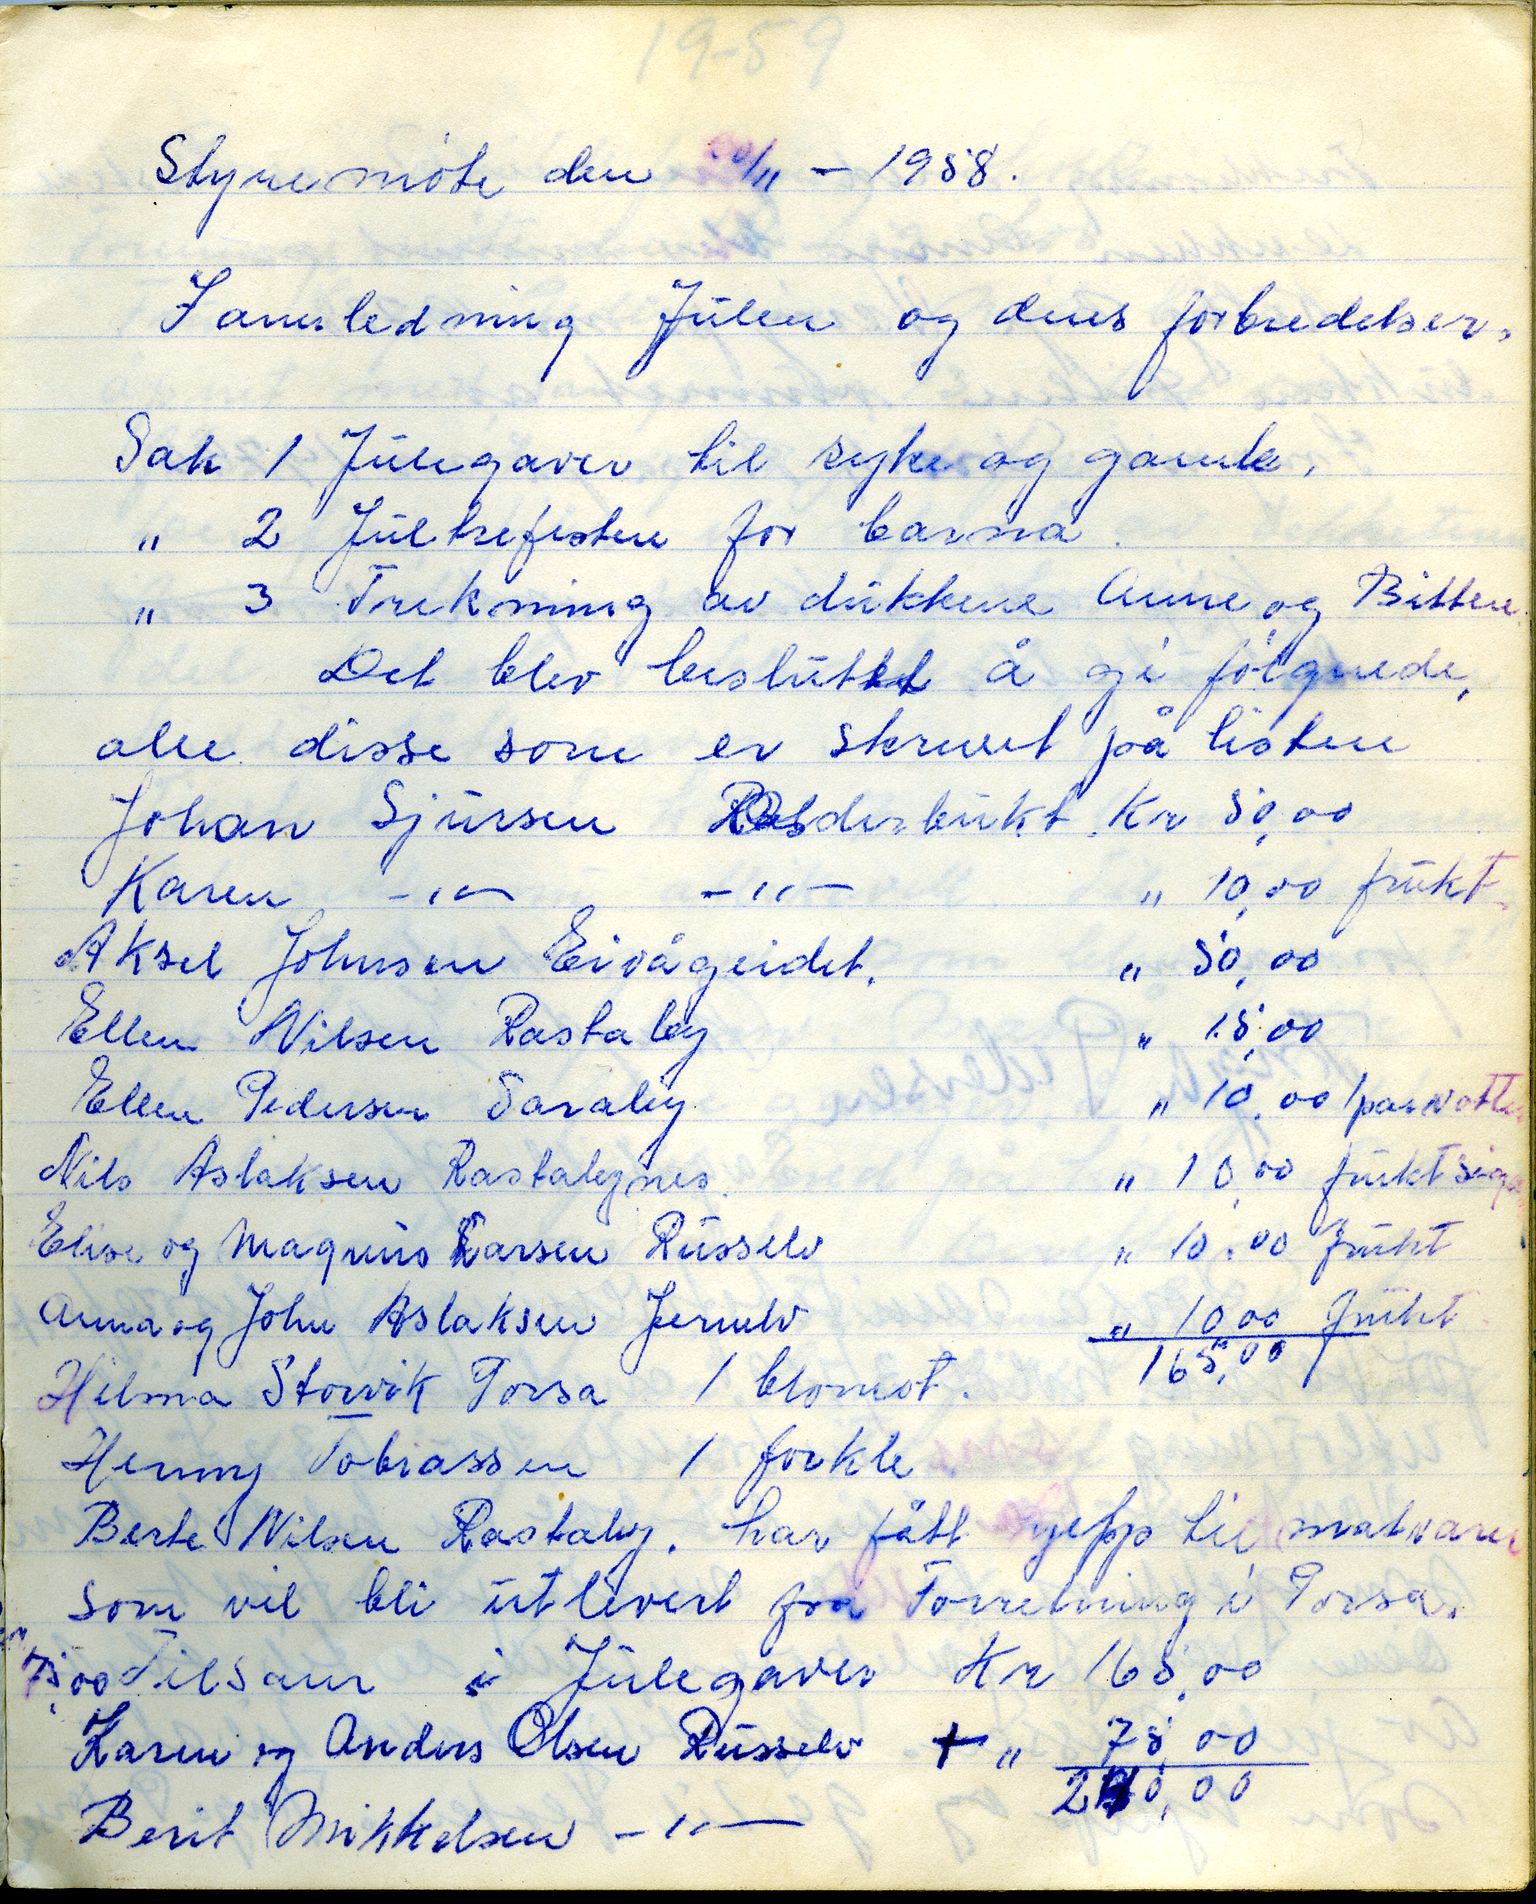 19-59
Styremöte den /11 - 1958.
Fanledning Julen og dens forbredelser.
Sak 1 Julegaver til syke og gamle.
" 2 Jultrefesten for barna.
" 3 Trekning av dukkene Anne og Bitten.
Det blev besluttet å gi fölgnede,
alle disse som er skrevet på listen
Johan Sjursen Kr 50,00
Karen -"- -"- " 10,00 frukt.
Aksel Johnsen Eivågeidet. " 50,00
Ellen Nilsen Rastaby " 15,00
Ellen Pedersen Saraby " 10,00 1 par votter
Nils Aslaksen Rastabynes. " 10,00 frukt
Elise og Magnus Larsen Russelv " 10.00 frukt
Anna og John Aslaksen Jernelv " 10,00 frukt.
165,00
Hilma Storvik Porsa 1 blomst.
Henny Tobiassen 1 forkle.
Berte Nilsen Rastaby. har fått til matvarer
som vil bli utlivert fra Forretning i Porsa.
75,00 Tilsam i Julegaver Kr 165,00
Karen og Anders Olsen Russelv + " 75,00
240,00
Berit Mikkelsen -"-